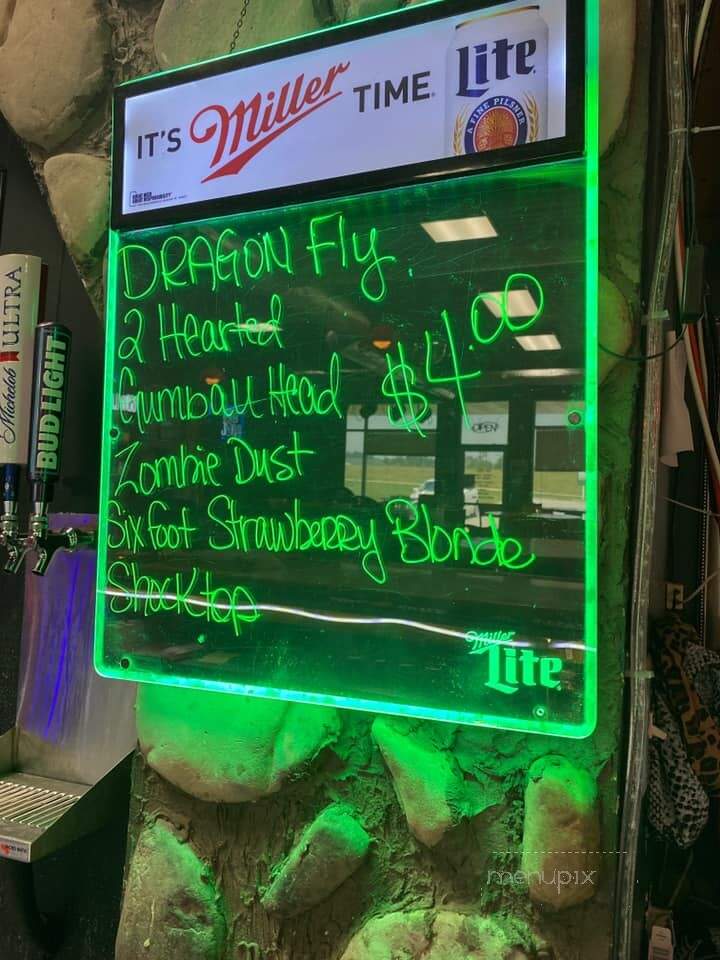 IT'S Miller TIME
Lite
A FINE PILSNER
DRAGON Fly.
2 Hearted
Gumball Head $4.00
Zombie Dust
Six foot Strawberry Blonde
Shock top
Miller
Lite
Michelob ULTRA
BUD LIGHT
OPEN
menupix